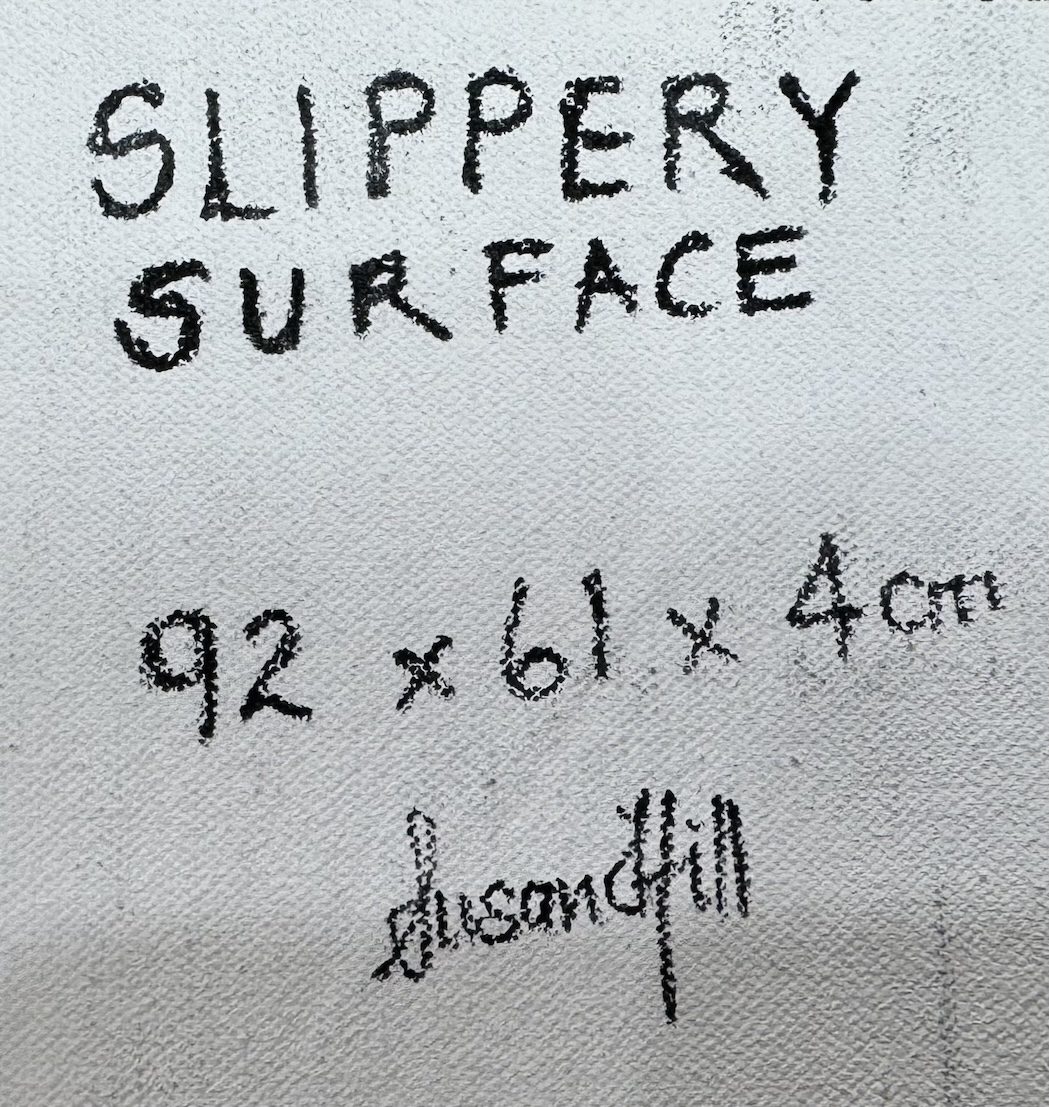 SLIPPERY
SURFACE
92 x 61 x 4cm
Susan Hill